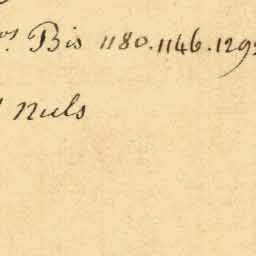 os Bis 1180.1146.129
nuls